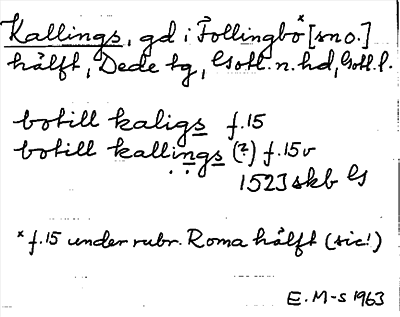 Kallings, gd i Follingbo* [sn o.]
hälft, Dede tg, Gotl. n. hd, Gotl. l.
botill kaligs f.15
botill kallings (?) f.15v
1523 skb Gs
* f.15 under rubr. Roma hälft (sic!)
E. M-s 1963